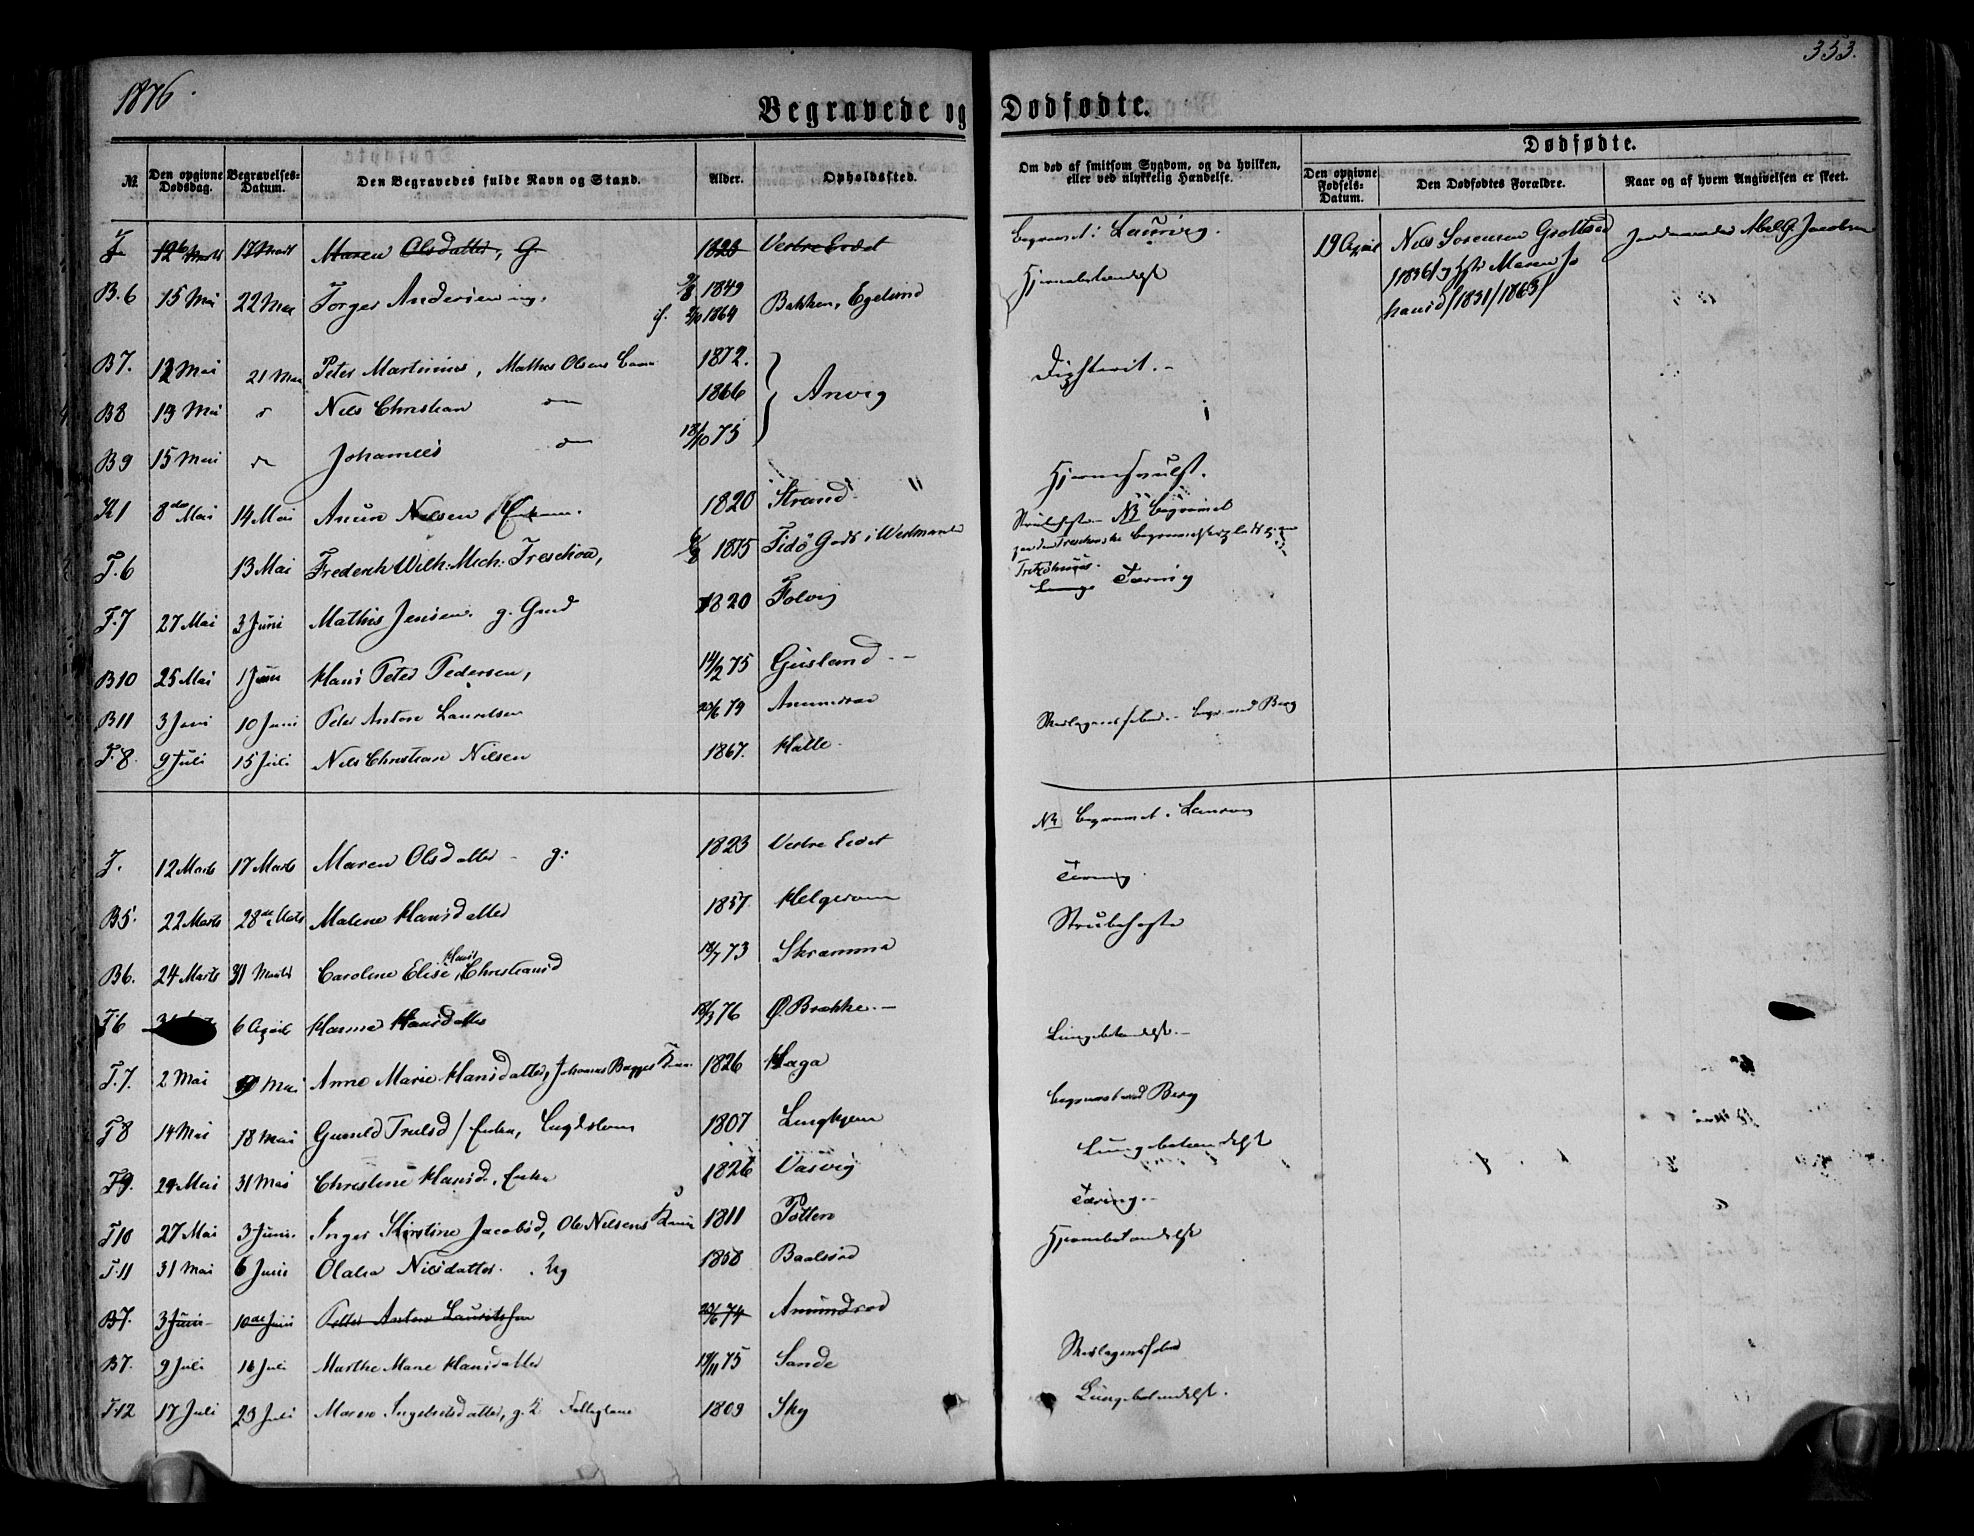 1876.
353.
Begravede og Dødfødte.
Dødfødte.
№
Den opgivne Dødsdag.
Begravelses-Datum.
Den Begravedes fulde Navn og Stand.
Alder.
Opholdssted.
Om død af smitsom Sygdom, og da hvilken, eller ved ulykkelig Hændelse.
Den opgivne Fødsels-Datum.
Den Dødfødtes Forældre.
Naar og af hvem Angivelsen er skeet.
12 Marts 17 Marts Maren Olsdatter, G. 1823 Vestre Eedet begravet i Laurvig. 19 April Nils Sorensen
B.6 15 Mai 22 Mai Torger Andersen ung. 1849 Bakken, Egelund Hjernebetændelse /1836/ Maren Jo
if. 1864 hansd /1831/1863/
B7. 12 Mai 21 Mai Peter Martinius, Mathis Olsens Barn 1872. Diphterit.
B8 13 Mai Nils Christian 1866 Anvig
B9 15 Mai Johannes 75
K1 8de Mai 14 Mai Nilsen 1820 Strand Hjernesvulst.
T.6 13 Mai Frederik Wilh: Mich: Treschow, 1875 Fidö Gods i Strubehoste NB begravet
T.7 27 Mai 3 Juni Mathis Jensen g. Gmd 1820 Folvig Lunge Tæring
B10 25 Mai 1 Juni Hans Peter Pedersen, 14/2 75 Gusland
B11 3 Juni 10 Juni Peter Anton Lauritsen Amundrød begr. ved Berg
T.8. 9 Juli 15 Juli Nils Christian Nilsen 1867. Halle.
T. 12 Marts 17 Marts Maren Olsdatter g: 1823 Vestre Eedet begravet i Laurvig
B5. 22 Marts 28de Marts Malene Hansdatter 1857. Helgeroa Tæring.
B6. 24 Marts 31 Marts Caroline Elise Hans Christiansd 73 Skramma Strubehoste
T6 6 April Hanna Hansdatter 76 Ø. Brække
T.7. 2 Mai Mai Anne Marie Hansdatter, Johannes Bagges Kone 1826 Haga Lungebetændelse.
T8 14 Mai 18 Mai Gunild Trulsd / Enke, 1807 begravet ved Berg
T9. 29 Mai 31 Mai Christine Hansd. Enke 1826 Vasvig Lungebetændelse
T10 27 Mai 3 Juni Inger Kirstine Jacobsd, Ole Nilsens Kone 1811 Tæring.
T.11 31 Mai 6 Juni Olava Nilsdatter. Ug 1858 Baalsrød Hjernebetændelse
B7. 3 Juni 10de Juni Petter Anton Lauritssen 74 Amundrød
B7. 9 Juli 16 Juli Marthe Marie Hansdatter 19/11 75 Sande
T12 17 Juli 23 Juli Maren Ingebretsdatter, g. 1809 Sky Lungebetændelse.